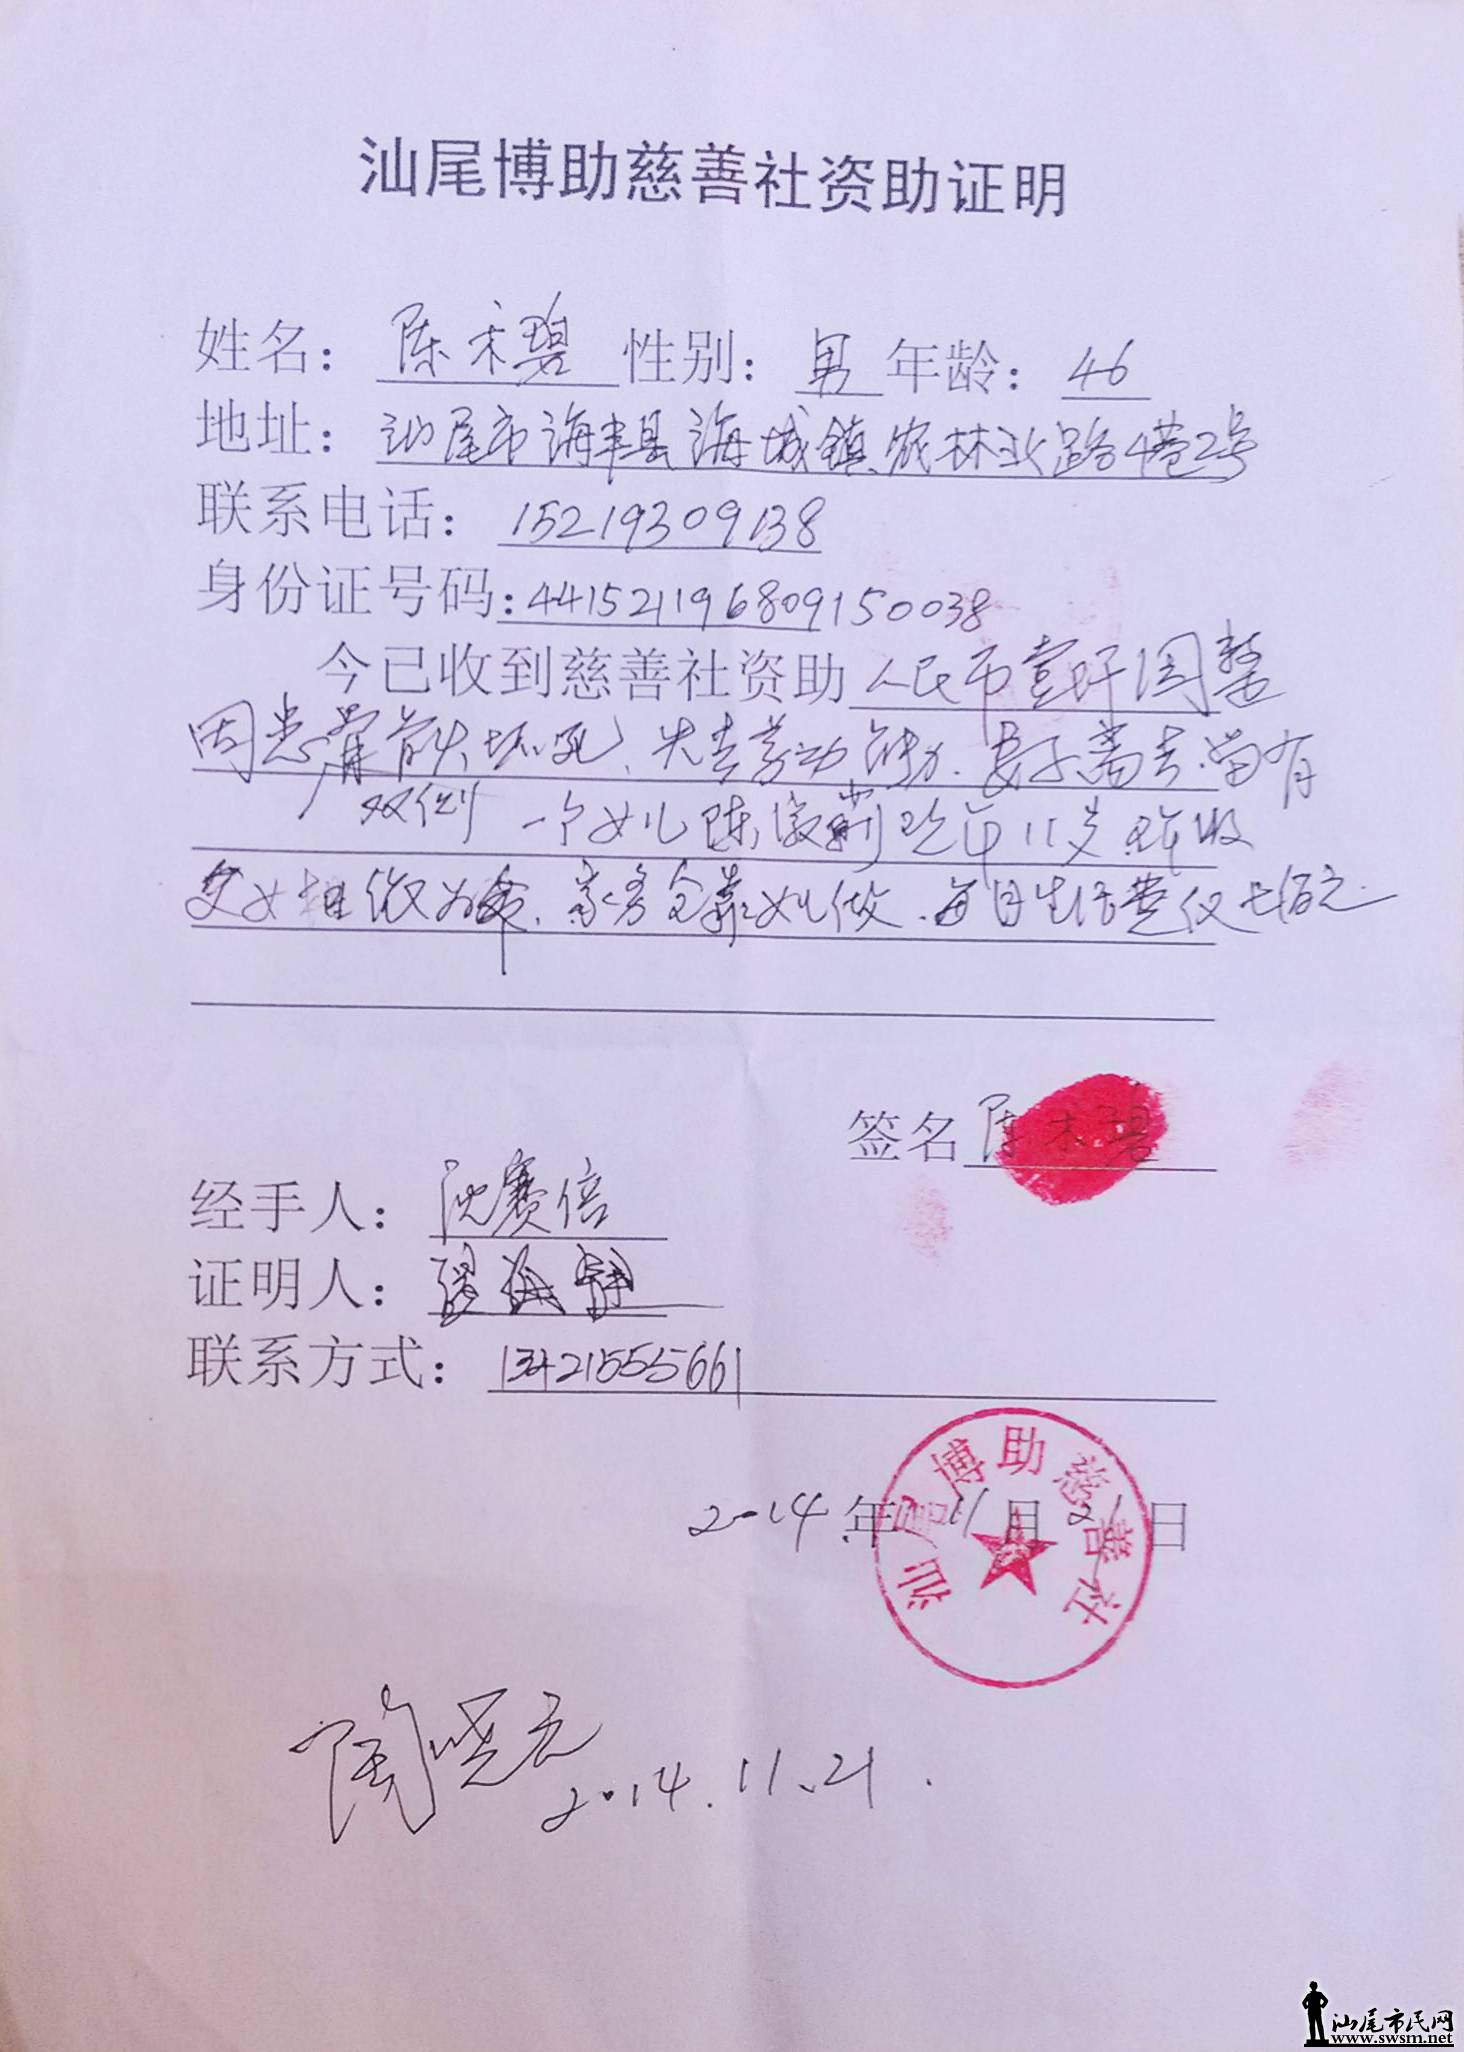 汕尾博助慈善社资助证明
姓名：陈木碧 性别：男 年龄：46
地址：汕尾市海丰县海城镇农林北路4巷2号
联系电话：15219309138
身份证号码：441521196809150038
今已收到慈善社资助人民币壹仟圆整
因患骨头坏死、失去劳动能力、妻子离去、留有
双侧 一个女儿陈 现年11岁
父女相依为命、家务全靠女儿做、每月生活费仅七佰元.
签名 陈木碧
经手人：沈赛倍
证明人：
联系方式：13421555661
2014年11月21日
汕尾博助慈善社
陶
2014.11.21.
汕尾市民网
www.swsm.net